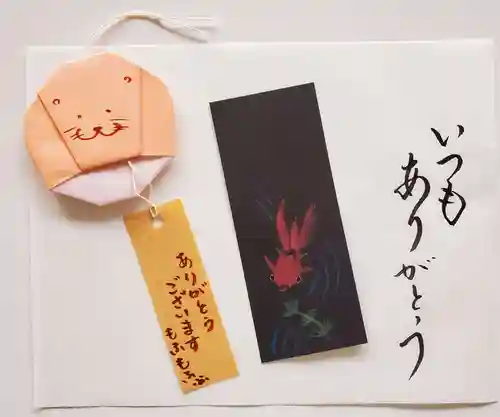 いつも
ありがとう
ありがとう
ございます
もふもふ